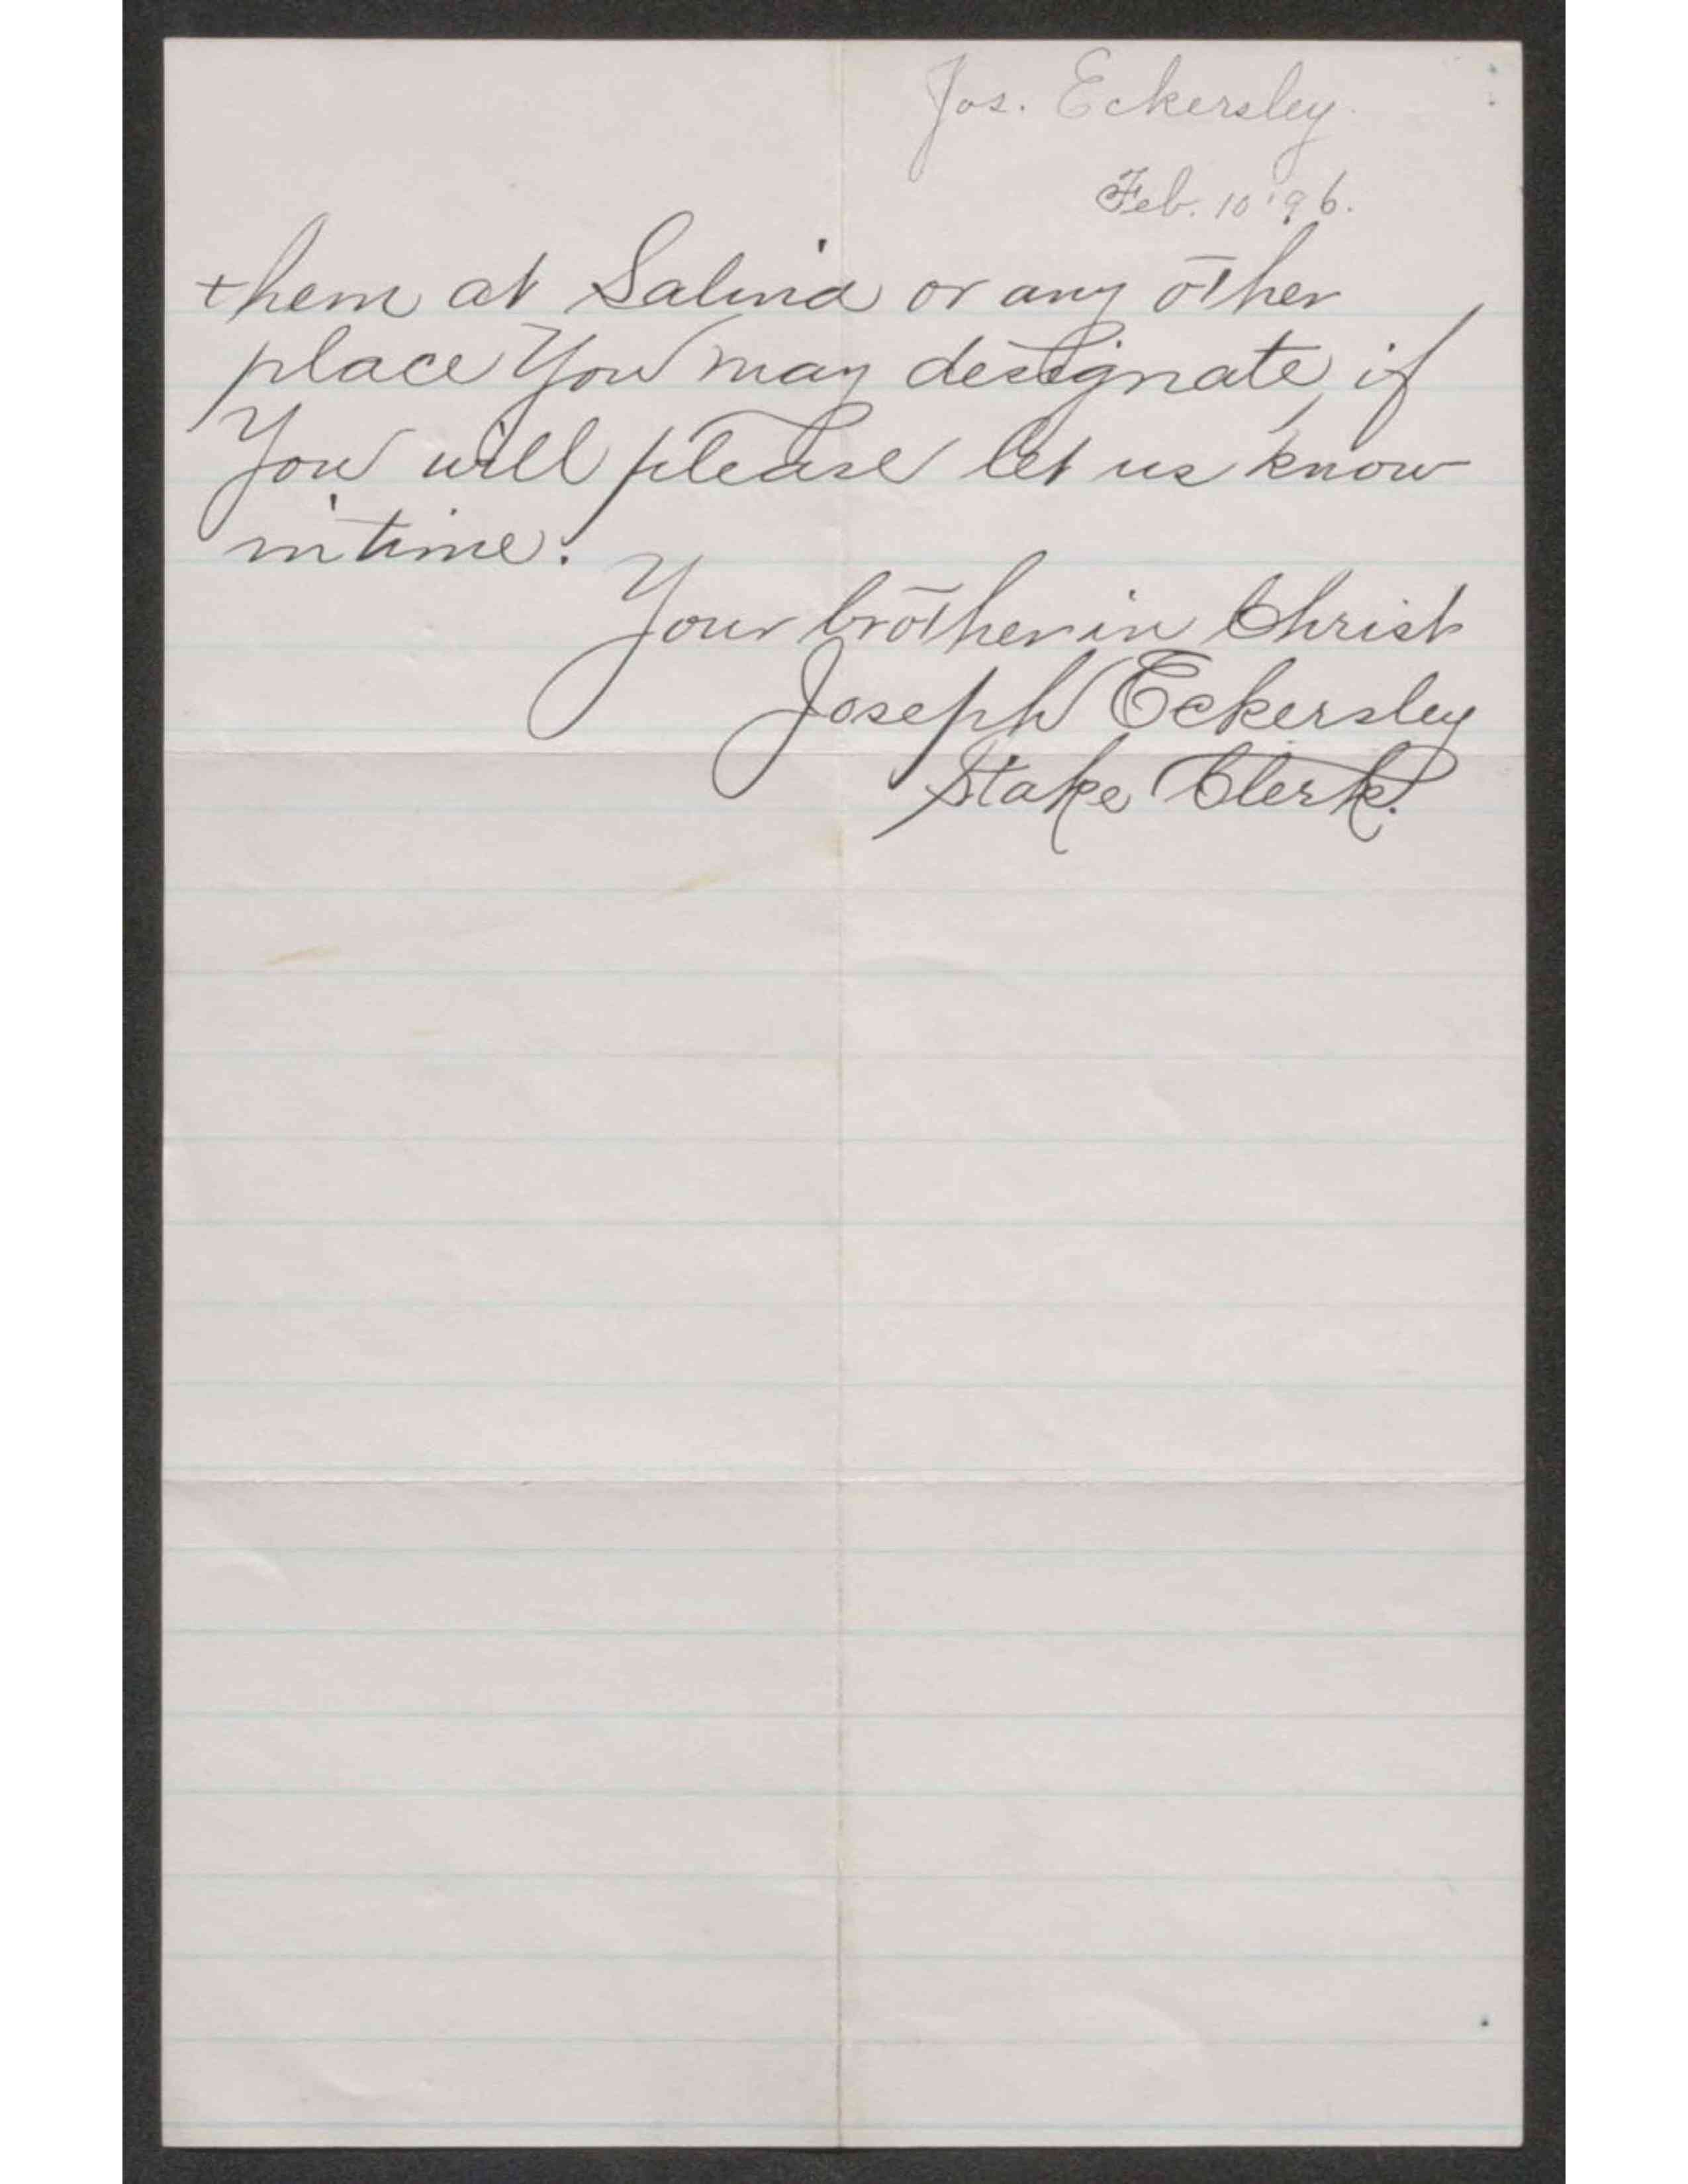 Jos. Eckersley.
Feb. 10 '96.
them at Salina or any other
place You may designate, if
You will please let us know
in time.
Your brother in Christ
Joseph Eckersley
Stake Clerk.